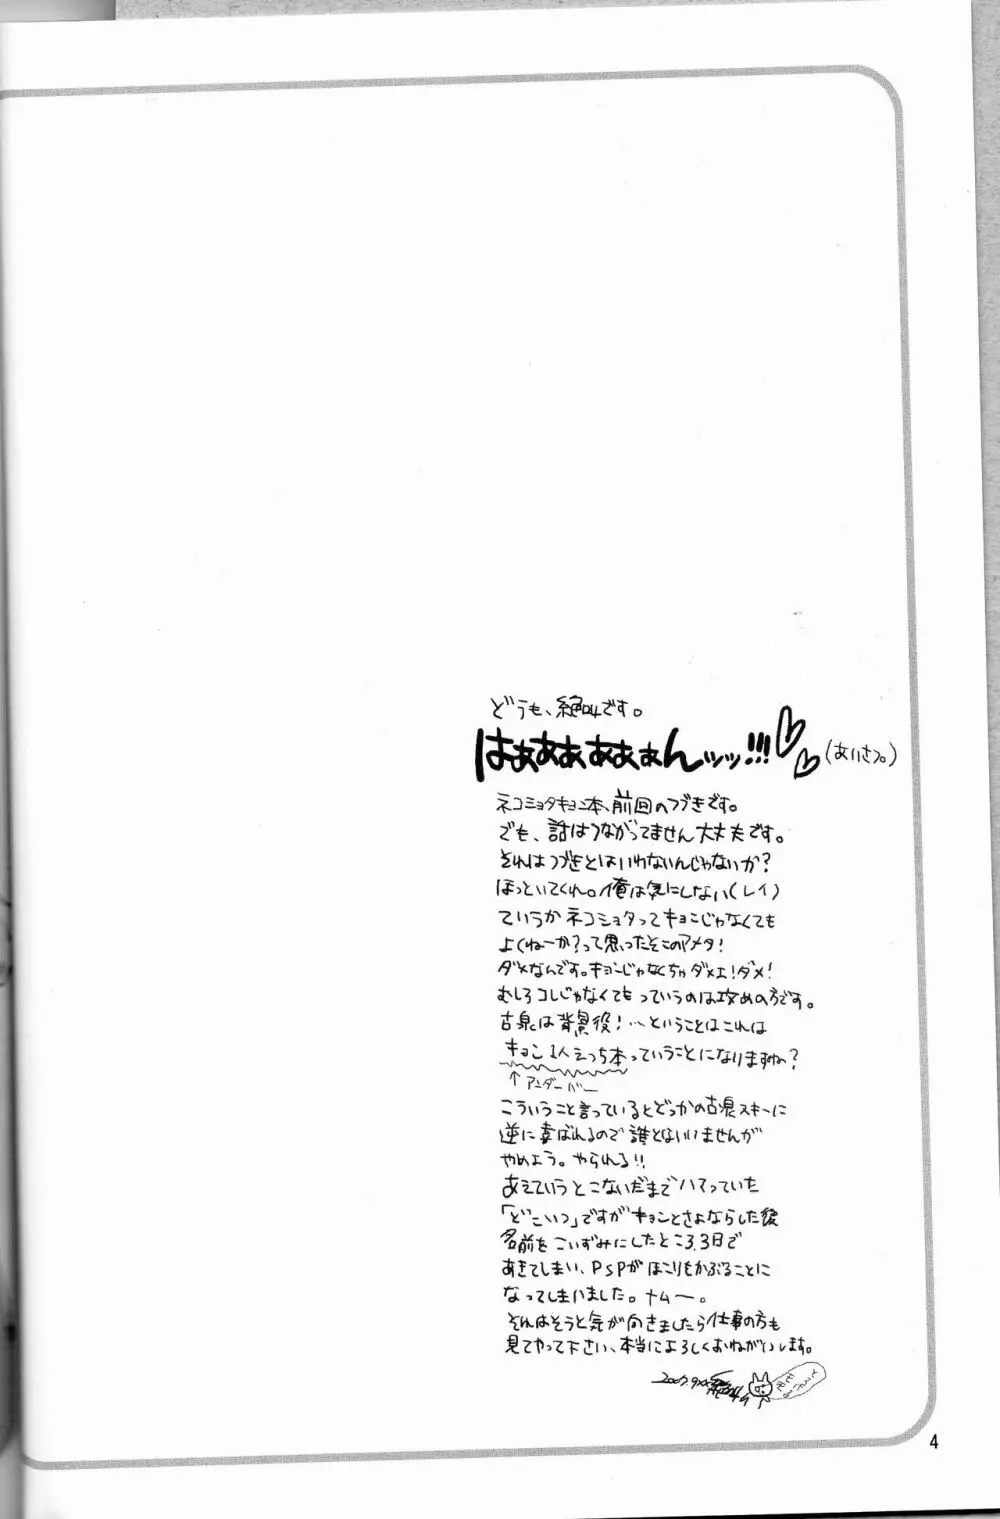 どうも、絶叫です。
はぁあぁあぁぁんッッ!!!
(あいさつ。)
ネコショタキョン本、前回のつづきです。
でも、話はつながってません大丈夫です。
それはつづきとはいわないんじゃないか?
ほっといてくれ。俺は気にしない(レイ)
ていうかネコショタってキョンじゃなくても
よくねーか?って思ったそこのアメタ!
ダメなんです。キョンじゃなくちゃダメェ!ダメ!
むしろコレじゃなくてもっていうのは攻めの方です。
古泉は背景役!…ということはこれは
キョン1人えっち本っていうことになりますね?
↑アンダーバー
こういうこと言っているとどっかの古泉スキーに
逆に喜ばれるので誰とはいいませんが
やめよう。やられる!!
あえていうとこないだまでハマっていた
「どこいつ」ですがキョンとさよならした後
名前をこいずみにしたところ3.3日で
あきてしまい、PSPがほこりをかぶることに
なってしまいました。ナムー。
それはそうと気が向きましたら仕事の方も
見てやって下さい、本当によろしくおねがいします。
2007.9
4